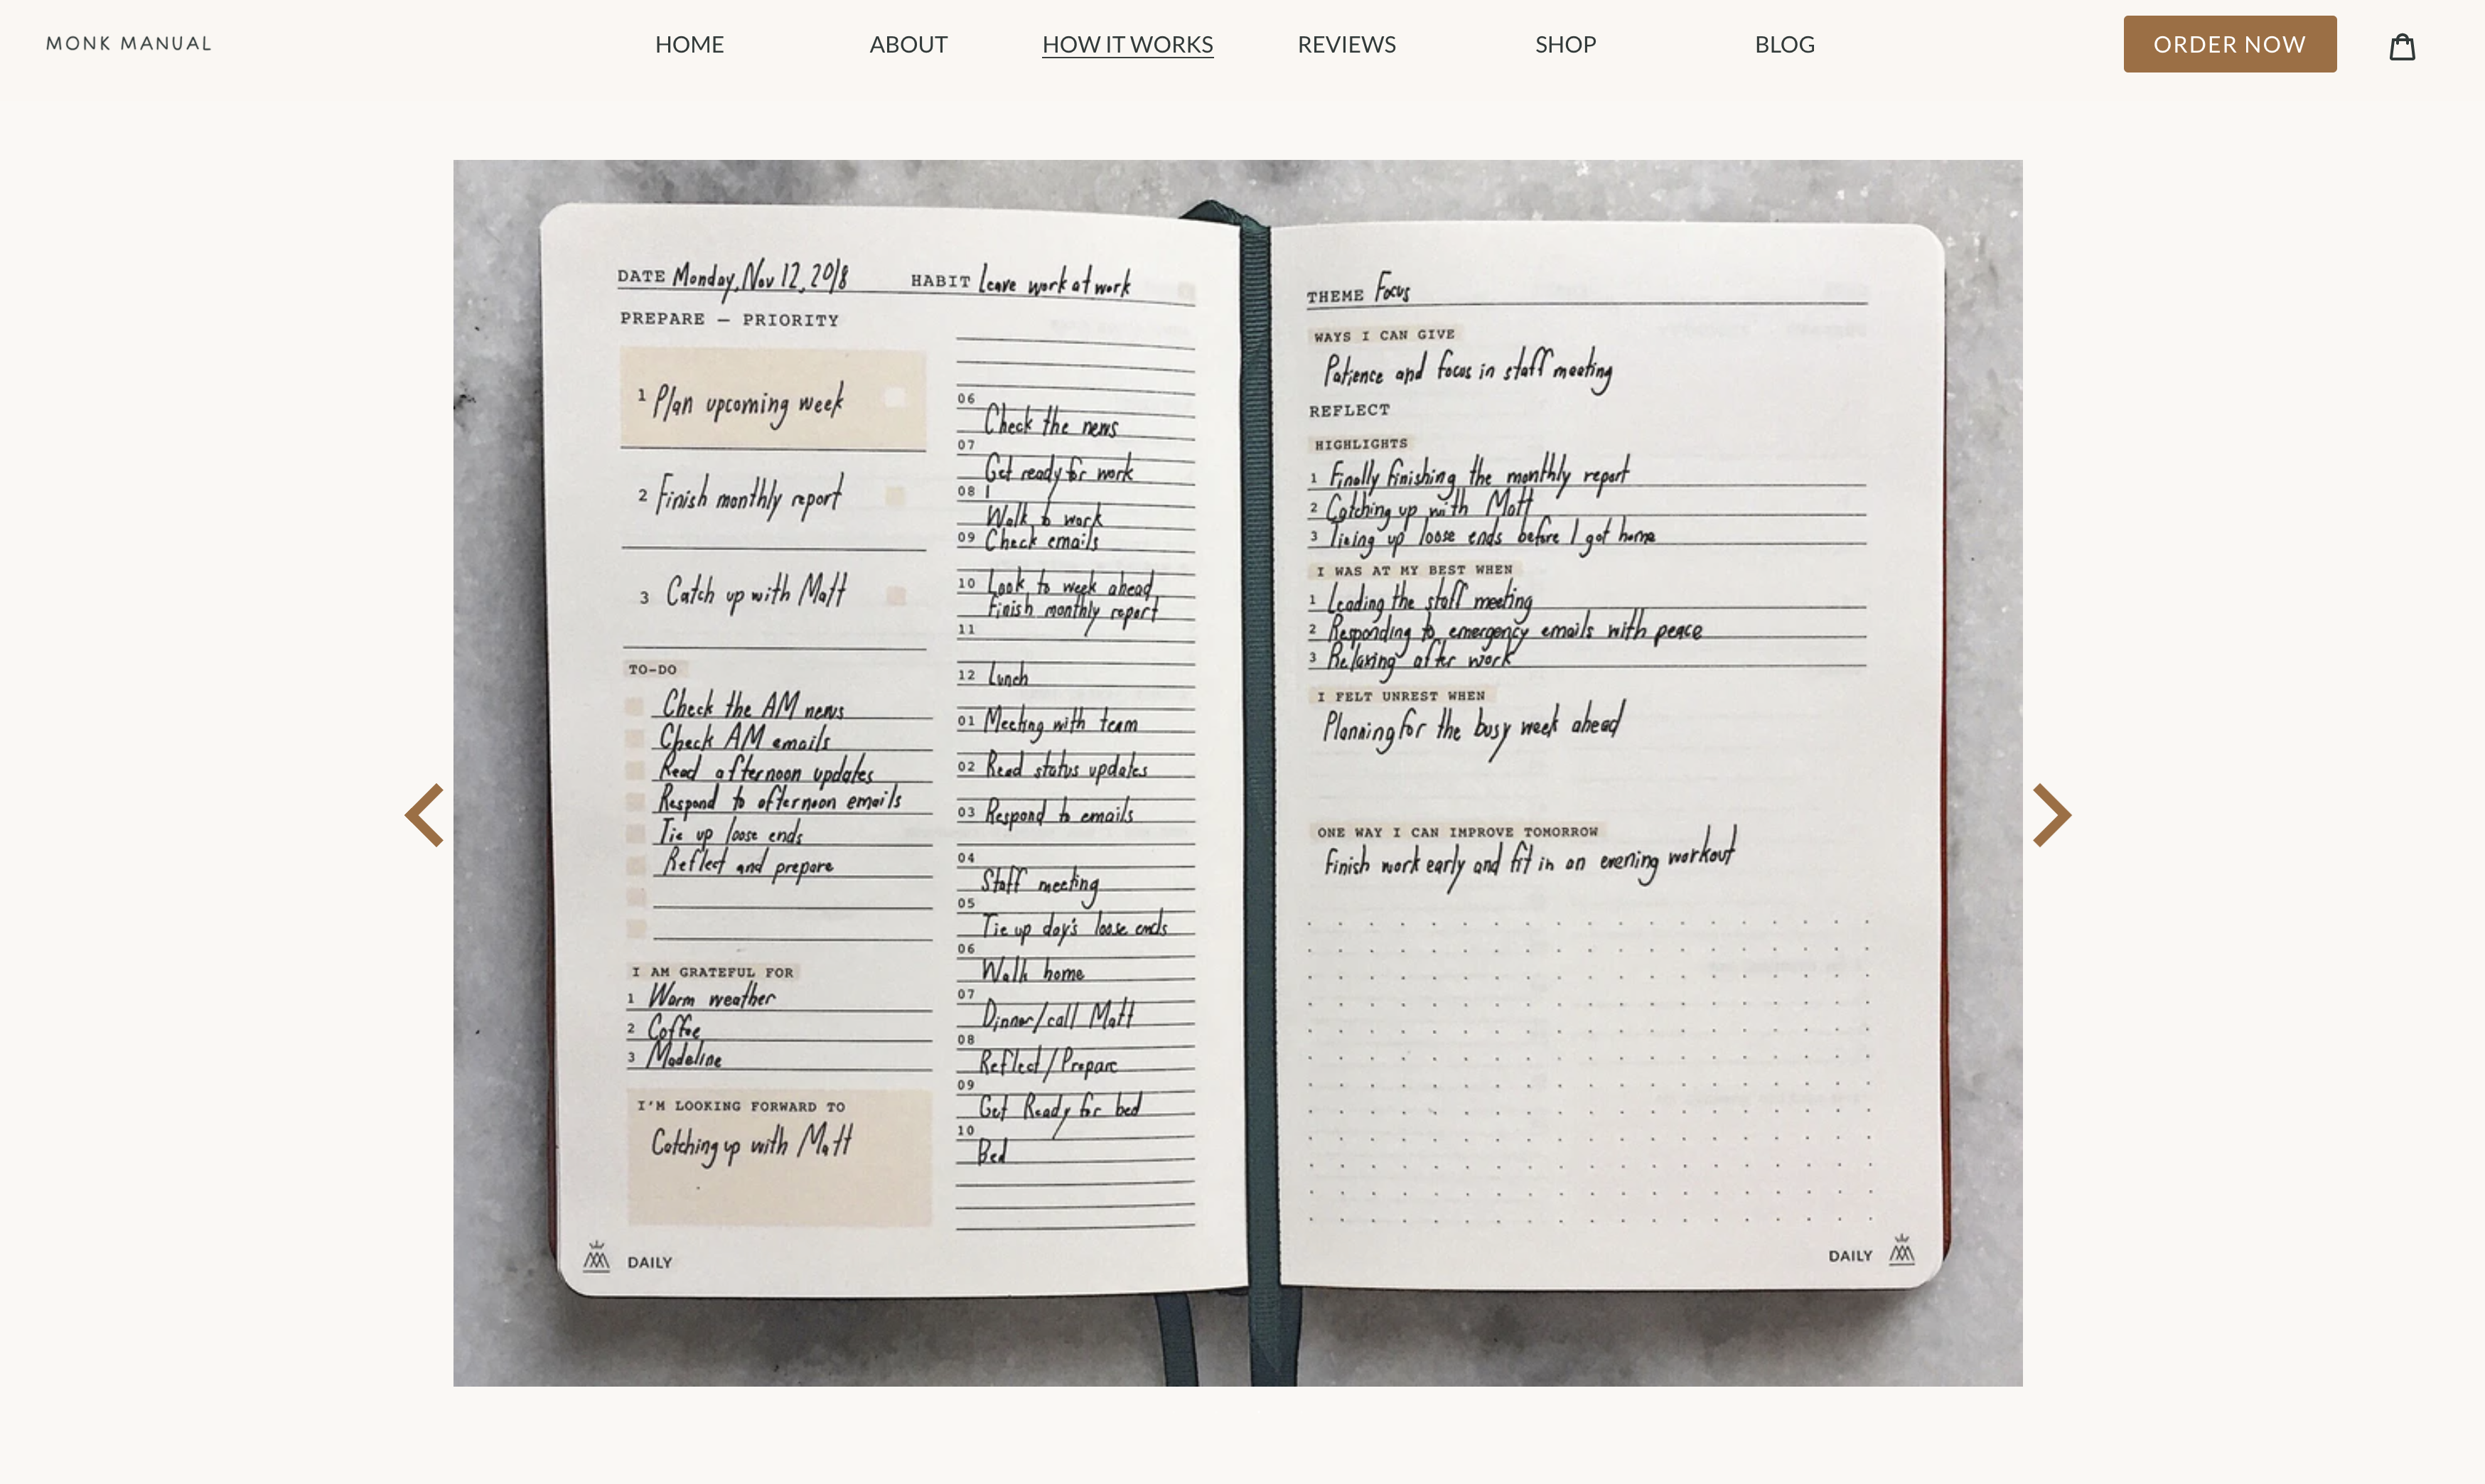 MONK MANUAL
HOME
ABOUT
HOW IT WORKS
REVIEWS
SHOP
BLOG
ORDER NOW
DATE Monday, Nov 12, 2018
HABIT Leave work at work
PREPARE — PRIORITY
1 Plan upcoming week
2 Finish monthly report
3 Catch up with Matt
TO-DO
Check the AM news
Check AM emails
Read afternoon updates
Respond to afternoon emails
Tie up loose ends
Reflect and prepare
I AM GRATEFUL FOR
1 Warm weather
2 Coffee
3 Madeline
I'M LOOKING FORWARD TO
Catching up with Matt
DAILY
06
Check the news
07
Get ready for work
08
Walk to work
09 Check emails
10 Look to week ahead
Finish monthly report
11
12 Lunch
01 Meeting with team
02 Read status updates
03 Respond to emails
04
Staff meeting
05
Tie up day's loose ends
06
Walk home
07
Dinner/call Matt
08
Reflect/Prepare
09
Get Ready for bed
10
Bed
THEME Focus
WAYS I CAN GIVE
Patience and focus in staff meeting
REFLECT
HIGHLIGHTS
1 Finally finishing the monthly report
2 Catching up with Matt
3 Tieing up loose ends before I got home
I WAS AT MY BEST WHEN
1 Leading the staff meeting
2 Responding to emergency emails with peace
3 Relaxing after work
I FELT UNREST WHEN
Planning for the busy week ahead
ONE WAY I CAN IMPROVE TOMORROW
Finish work early and fit in an evening workout
DAILY